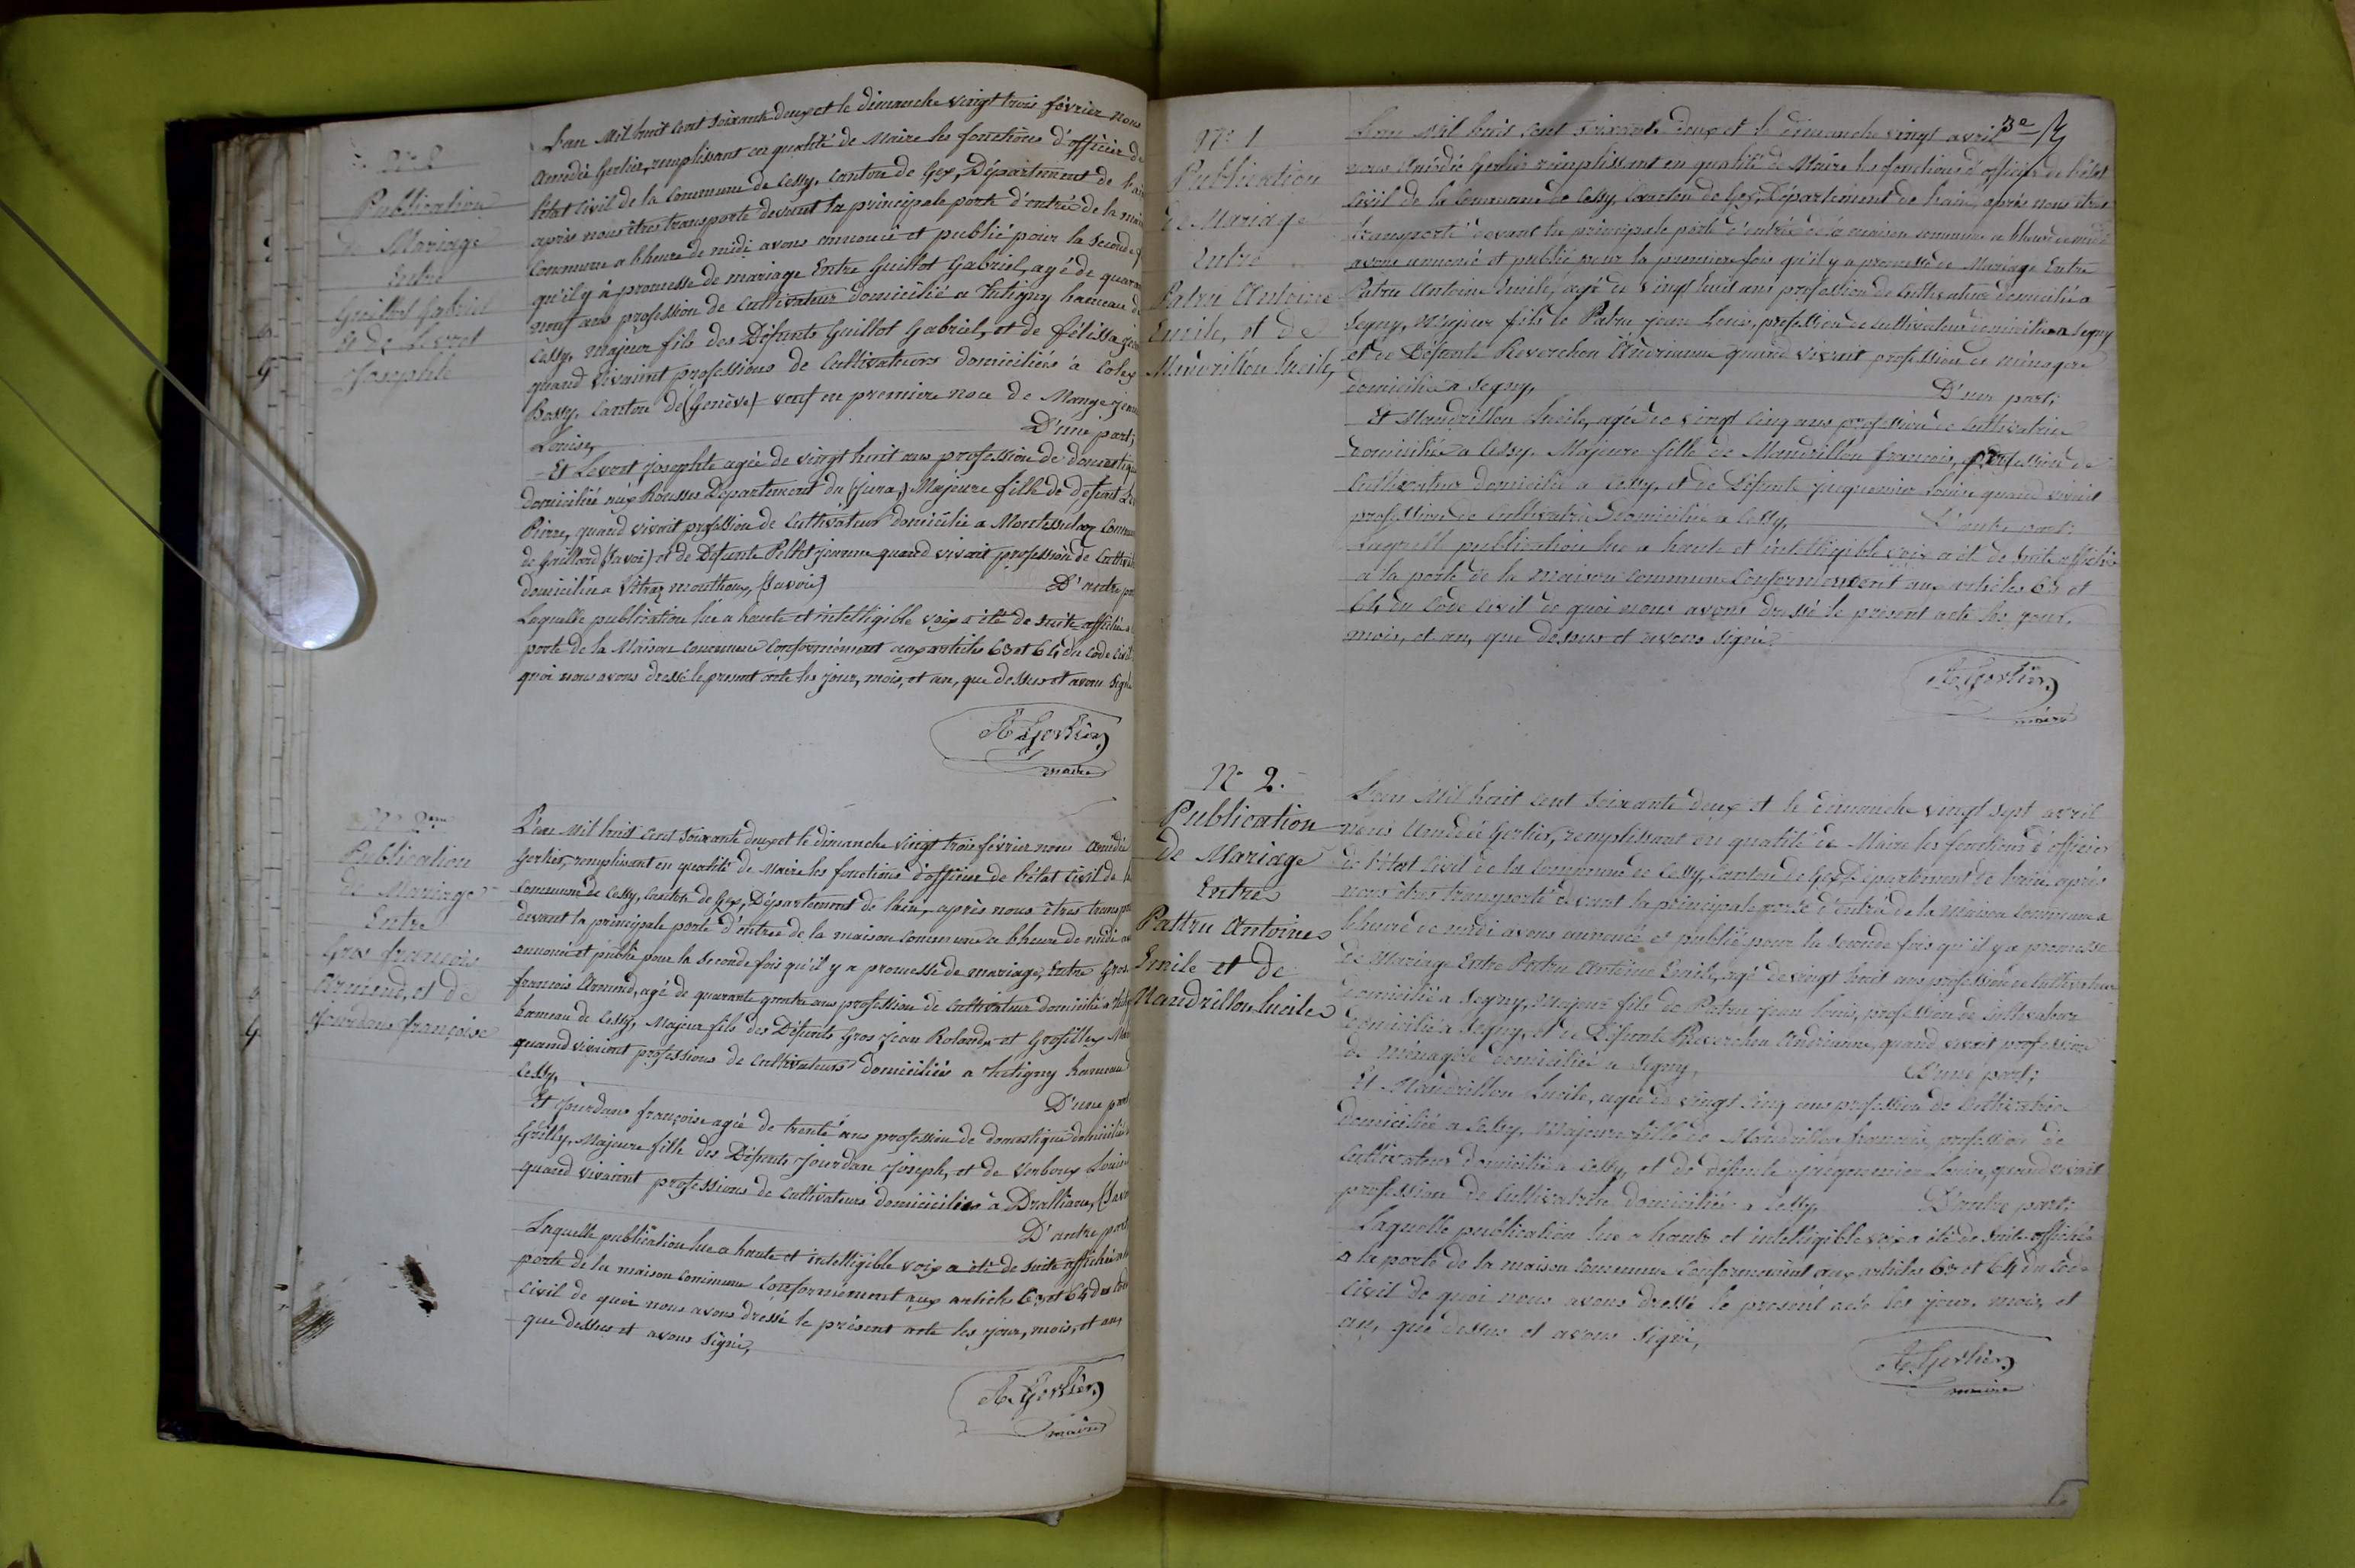 N° 2
Publication
de Mariage
Entre
Guillot Gabriel
et de Levret
Josephte
L'an Mil huit cent soixante deux et le dimanche vingt trois février nous
Amédée Gerlier, remplissant en qualité de Maire les fonctions d'officier de
l'état civil de la Commune de Cessy, canton de Gex, Département de l'ain
après nous être transporté devant la principale porte d'entrée de la maison
Commune a l'heure de midi avons annoncé et publié pour la seconde f
qu'il y à promesse de mariage Entre Guillot Gabriel, agé de quarante
neuf ans profession de Cultivateur domicilié a Tutigny hameau de
Cessy, Majeur fils des Défunts Guillot Gabriel, et de félissa
quand vivaint professions de Cultivateurs domiciliés à Colex
Bossy, canton de (Genève) veuf en premiere noce de Monge jeanne
Louise, D'une part;
Et Levret josephte agée de vingt huit ans profession de domestique
domiciliée aux Rousses Departement du (Jura,) Majeure fille de defunt
Pierre, quand vivait profession de Cultivateur domicilié a Montessuloz Commune
de Gaillard (Savoi) et de Défunte Pellet jeanne quand vivait profession de Cultiva
domiciliée a Vétraz monthoux, (Savoie) D'autre pa
Laquelle publication lue a haute et intelligible voix a été de suite affichée a
porte de la Maison Commune Conformément aux articles 63 et 64 du Code Civil
quoi nous avons dressé le present acte les jour, mois, et an, que dessus et avons Signé
A. Gerlier
maire
N° 2eme
Publication
de Mariage
Entre
Gros françois
Armand, et de
Jourdans françoise
L'an Mil huit cent soixante deux et le dimanche vingt trois février nous Amédée
Gerlier, remplissant en qualité de Maire les fonctions d'officier de l'état civil de la
Commune de Cessy, canton de Gex, Département de l'ain, après nous êtres transpor
devant la principale porte d'entrée de la maison Commune a l'heure de midi av
annoncé et publié pour la seconde fois qu'il y a promesse de mariage, Entre Gros
françois Armand, agé de quarante quatre ans profession de Cultivateur domicilié a Tutigny
hameau de Cessy, Majeur fils des Défunts Gros jean Roland, et Grosfilley Ma
quand vivaient professions de Cultivateurs domiciliés a Tutigny hameau d
Cessy, D'une part
Et Jourdans françoise agée de trente ans profession de domestique domiciliée a
Grilly, Majeure fille des Défunts Jourdan Joseph, et de Verboux Louise
quand vivaient professions de Cultivateurs domiciciliés à Draillans, (Savo
D'autre part
Laquelle publication lue a haute et intelligible voix a été de suite affichée a la
porte de la maison Commune Conformément aux articles 63 et 64 du Code
civil de quoi nous avons dressé le présent acte les jour, mois, et an,
que dessus et avons Signé,
A. Gerlier
maire
3e
N° 1
Publication
de Mariage
Entre
Patru Antoine
Emile, et de
Mandrillon Lucile,
L'an Mil huit cent soixante deux et le dimanche vingt avril
nous Amédée Gerlier remplissant en qualité de Maire les fonctions d'officier de l'état
civil de la Commune de Cessy, Canton de Gex, Département de l'ain, après nous être
transporté devant la principale porte d'entrée de la maison commune a l'heure de midi
avons annoncé et publié pour la premiere fois qu'il y a promesse de Mariage Entre
Patru Antoine Emile, agé de vingt huit ans profession de Cultivateur domicilié a
Segny, Majeur fils de Patru jean Louis, profession de cultivateur domicilié a Segny
et de Défunte Reverchon Andrianne quand vivait profession de ménagère
domiciliée a Segny, D'une part;
Et Mandrillon Lucile, agée de vingt cinq ans profession de Cultivatrice
domiciliée a Cessy, Majeure fille de Mandrillon francois, profession de
Cultivateur domicilié a Cessy, et de Défunte jacquemier Louise quand vivait
profession de Cultivatrice domiciliée a Cessy, D'autre part;
Laquelle publication lue a haute et intelligible voix a été de suite affichée
a la porte de la maison Commune Conformément aux articles 63 et
64 du Code civil de quoi nous avons dressé le présent acte les jour,
mois, et an, que dessus et avons signé.
A. Gerlier
maire
N° 2.
Publication
de Mariage
Entre
Pattru Antoine
Emile et de
Mandrillon Lucile
L'an Mil huit cent soixante deux et le dimanche vingt sept avril
nous Amédée Gerlier, remplissant en qualité de Maire les fonctions d'officier
de l'état civil de la Commune de Cessy, canton de Gex, Département de l'ain, après
nous êtres transporté devant la principale porte d'entrée de la Maison Commune a
l'heure de midi avons annoncé et publié pour la seconde fois qu'il y a promesse
de Mariage Entre Patru Antoine Emile, agé de vingt huit ans profession de Cultivateur
domicilié a Segny, Majeur fils de Patru jean Louis, profession de Cultivateur
domicilié a Segny, et de Défunte Reverchon Andrianne, quand vivait profession
de ménagère domiciliée a Segny, D'une part;
Et Mandrillon Lucile, agée de vingt cinq ans profession de Cultivatrice
domiciliée a Cessy, Majeure fille de Mandrillon francois, profession de
Cultivateur domicilié a Cessy, et de défunte jacquemier Louise, quand vivait
profession de Cultivatrice domiciliée a Cessy, D'autre part;
Laquelle publication lue a haute et intelligible voix a été de suite affichée
a la porte de la maison Commune Conformément aux articles 63 et 64 du Code
civil de quoi nous avons dressé le présent acte les jour, mois, et
an, que dessus et avons signé,
A. Gerlier
maire